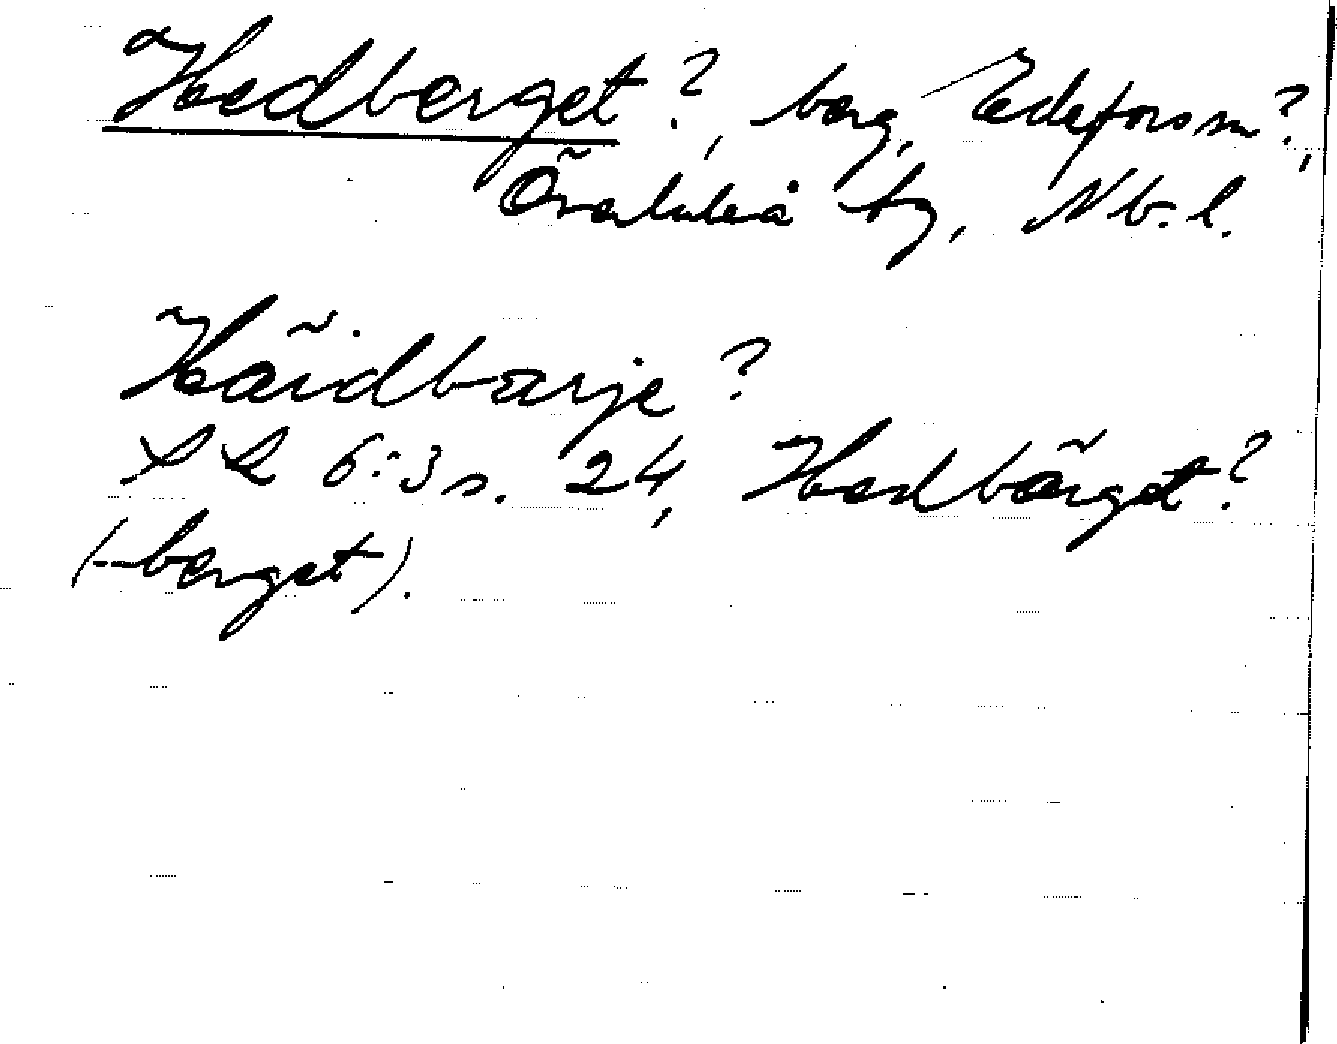 Hedberget?, berg, Edefors sn?,
Överluleå tg, Nb. l.
Häidbärje?
LL 6:3 s. 24, Hedbärget?
(-berget).